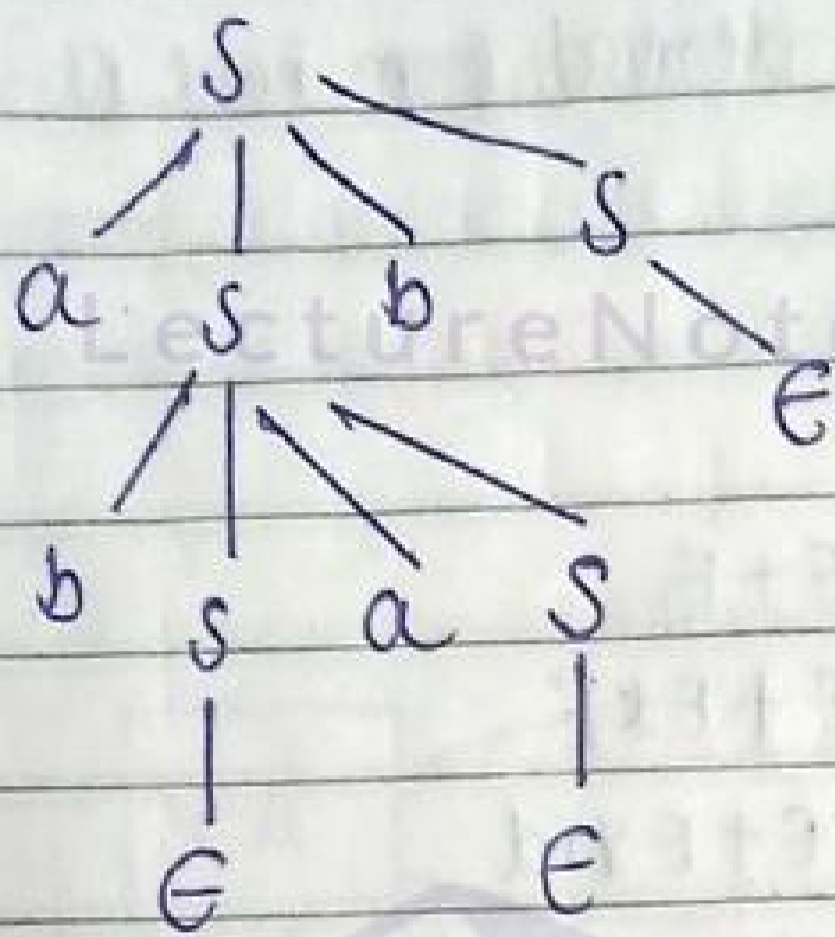 S
S
a S b
LectureNot
ϵ
b S a S
ϵ ϵ